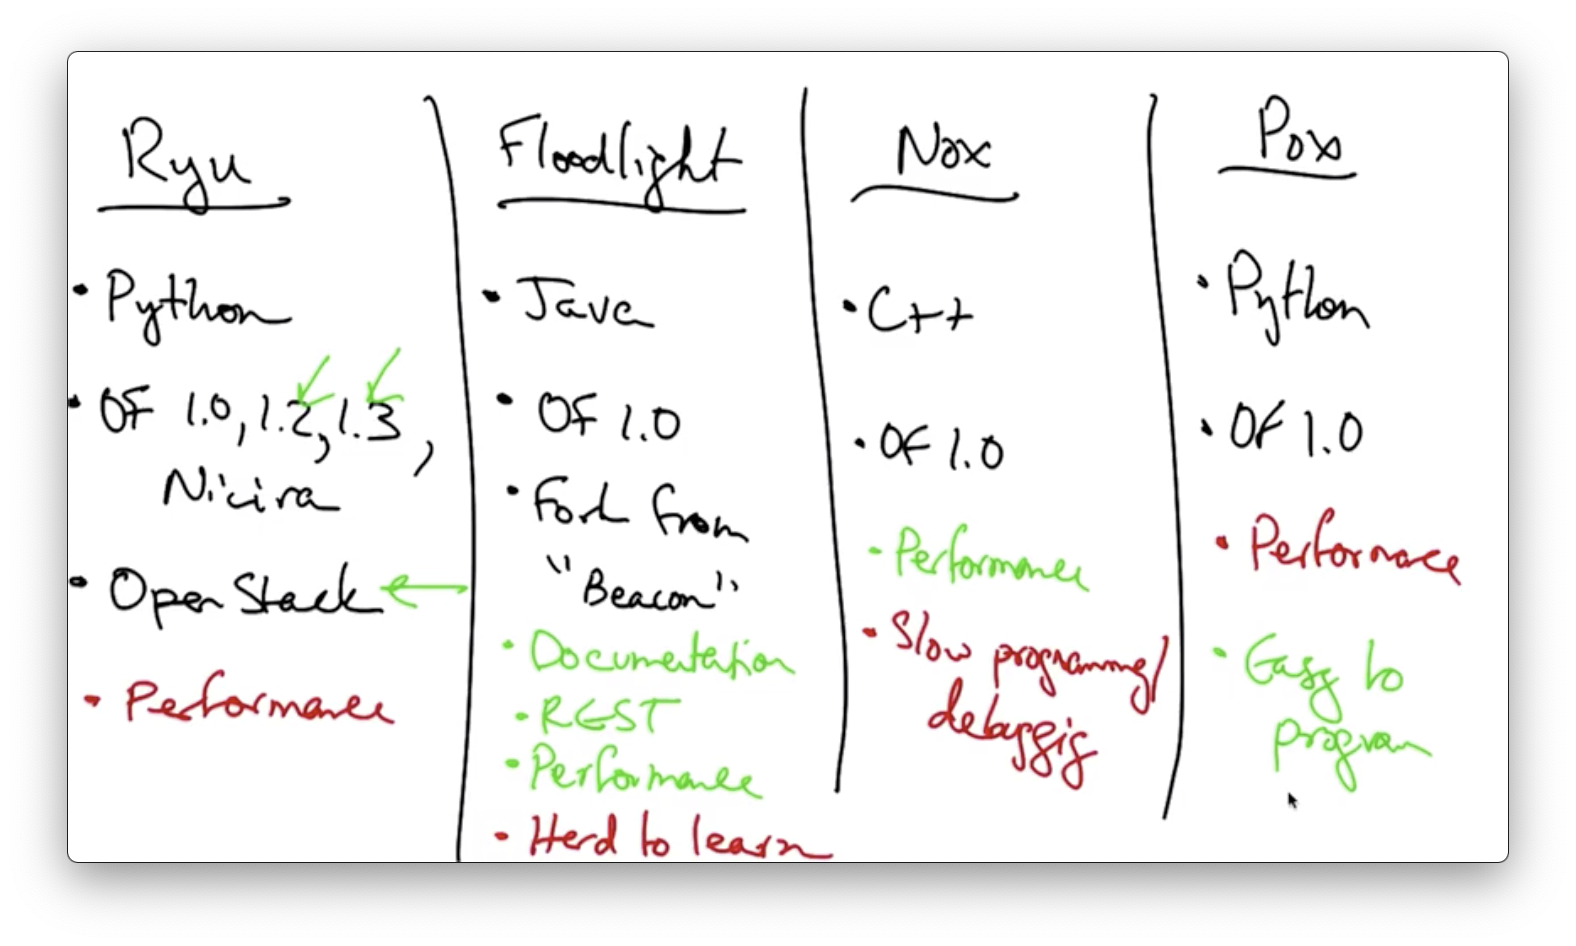 Ryu
• Python
• OF 1.0, 1.2, 1.3,
Nicira
• OpenStack
• Performance
Floodlight
• Java
• OF 1.0
• Fork from
"Beacon"
• Documentation
• REST
• Performance
• Hard to learn
Nox
• C++
• OF 1.0
• Performance
• Slow programming/
debuggig
Pox
• Python
• OF 1.0
• Performace
• Easy to
program